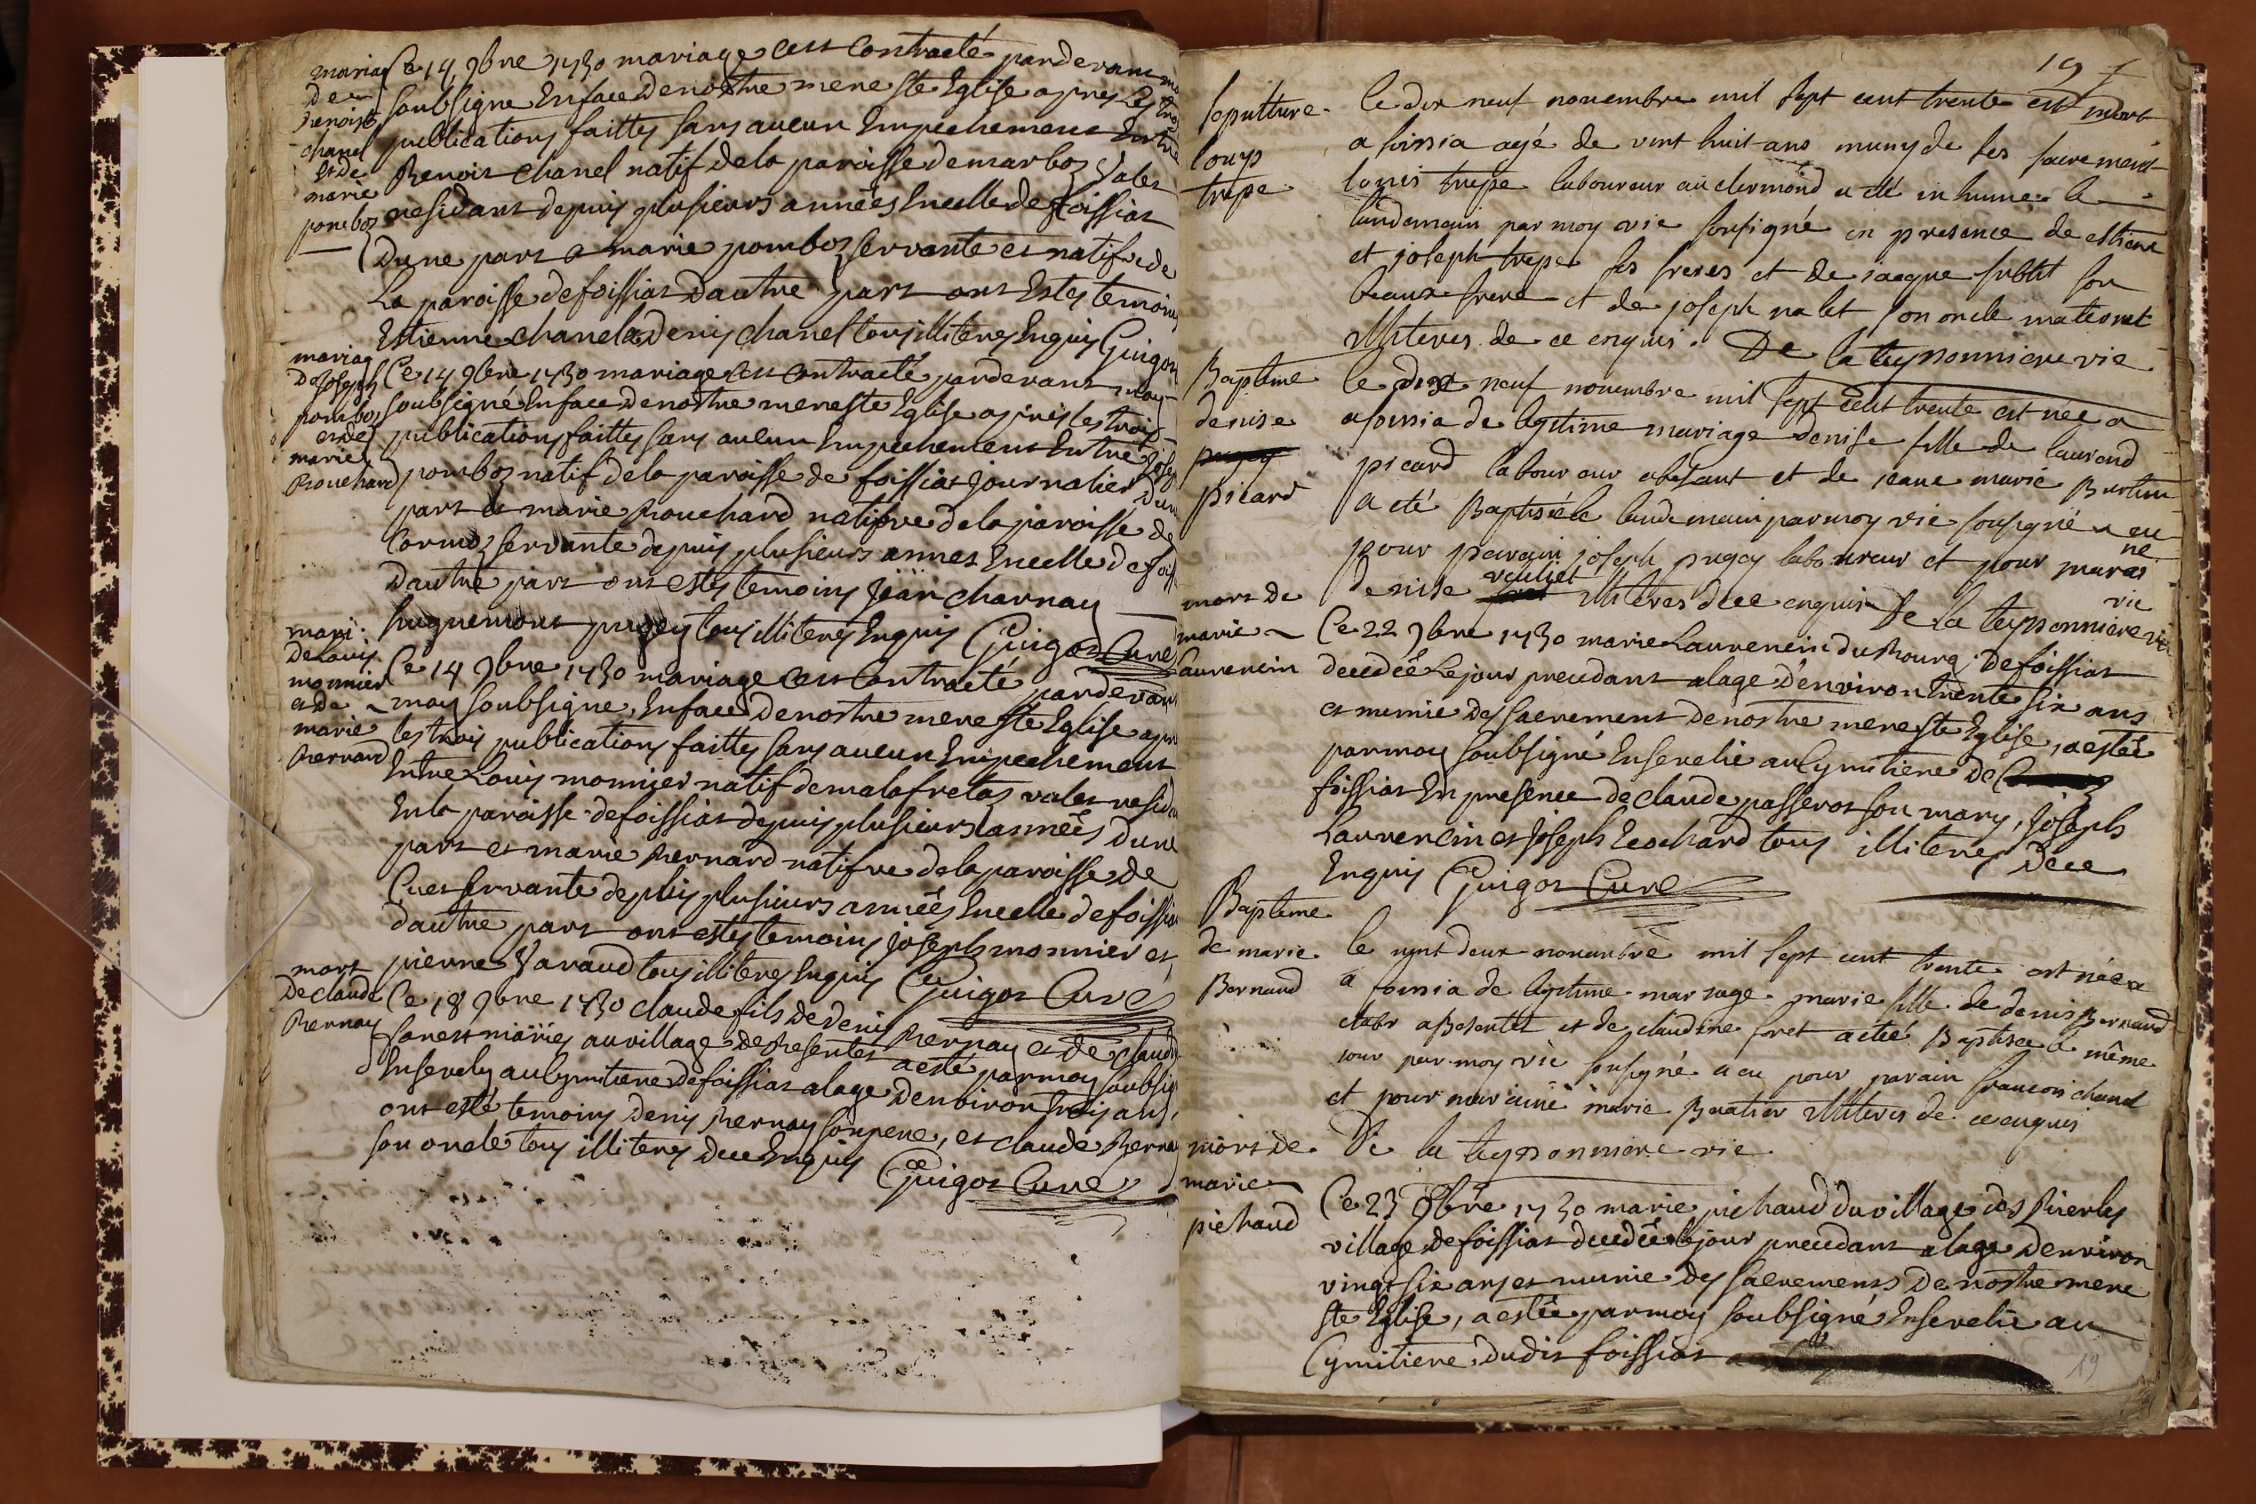 mariag
de
Benoist
chanel
et de
marie
pomboz
Ce 14 9bre 1730 mariage a est contracté pardevant moy
soubsigne En face de nostre mere ste Eglise apres les trois
publications faittes sans aucun Empechement Entre
Benoit chanel natif de la paroisse de marboz valet
residant depuis plusieurs années En celle de foissiat
Dune part & marie pomboz servante et natifve de
La paroisse de foissiat Dautre part ont Estes temoins
Estienne chanel & Denis chanel tous illiteres Enquis Guigoz
mariag
De Joseph
pomboz
et de
marie
Bouchard
Ce 14 9bre 1730 mariage a est contracté pardevant moy
soubsigné En face De nostre mere ste Eglise apres les trois
publications faittes sans aucun Empechement Entre Joseph
pomboz natif de la paroisse de foissiat Journalier Dune
part & marie Bouchard natifve de la paroisse de
Cormoz servante depuis plusieurs annes En celle de foiss
Dautre part ont estes temoins Jean charnay
huguemont pugey tous illiteres Enquis Guigoz Curé
mari:
De Louis
monnier
et de
marie
Bernard
Ce 14 9bre 1730 mariage a est Contracté pardevant
moy soubsigne, En face De nostre mere ste Eglise apres
les trois publications faittes sans aucun Empechement
Entre Louis monnier natif de malafretaz valet residant
En la paroisse de foissiat depuis plusieurs années Dune
part et marie Bernard natifve de la paroisse de
Cuet servante depuis plusieurs années En celle de foissiat
Dautre part ont estes temoins Joseph monnier et
pierre Varaud tous illiteres Enquis Guigoz Curé
mort
De claude
Bernay
Ce 18 9bre 1730 claude fils De Denis Bernay et De claudi
foret mariés au village De Besentet a esté par moy soubsig
Ensevely au Cymitiere De foissiat alage Denviron trois ans,
ont esté temoins Denis Bernay son pere, et claude Bernay
son oncle tous illiteres De ce Enquis Guigoz Curé
19
sepulture
louys
trepe
le dix neuf novembre mil sept cent trente est mort
a foissia agé de vint huit ans muny de ses sacrements
louis trepe laboureur au clermond a eté inhume le
lendemain par moy vic sousigné en presence de estiene
et joseph trepe ses freres et de jacque sublit son
beaux frere et de joseph nalet son oncle maternel
illiteres de ce enquis. De la teyssonniere vic
Baptême
denise
picard
le dix neuf novembre mil sept cent trente est née a
a foissia de legitime mariage denise fille de laurend
picard laboureur abesant et de jeane marie Burtin
a eté Baptisée le lendemain par moy vic sousigné a eu
pour parain joseph pugey laboureur et pour maraine
denise veuliet illiteres de ce enquis De la teyssonniere vic
mort de
marie
Laurencin
Ce 22 9bre 1730 marie Laurencin du Bourg de foissiat
decedée Le jour precedant alage D'environ trente six ans
et munie des sacrement De nostre mere ste Eglise, a estée
par moy soubsigné Ensevelie au Cymitiere de
foissiat En presence de claude passerot son mary, Joseph
Laurencin et Joseph Leochard tous illiteres De ce
Enquis Guigoz Curé
Baptême
de marie
Bernaud
le vint deux novembre mil sept cent trente est née a
a foissia de legitime mariage marie fille de denis Bernaud
et de claudine foret a eté Baptisée le même
jour par moy vic sousigné a eu pour parain francois chanel
et pour maraine marie Buatier illiteres de ce enquis
De la teyssonniere vic
mort de
marie
pichaud
Ce 23 9bre 1730 marie pichaud du village des
village de foissiat decedée le jour precedant alage Denviron
vingt six ans et munie des sacrements De nostre mere
ste Eglise, a estée par moy soubsigné Ensevelie au
Cymitiere dudit foissiat
19